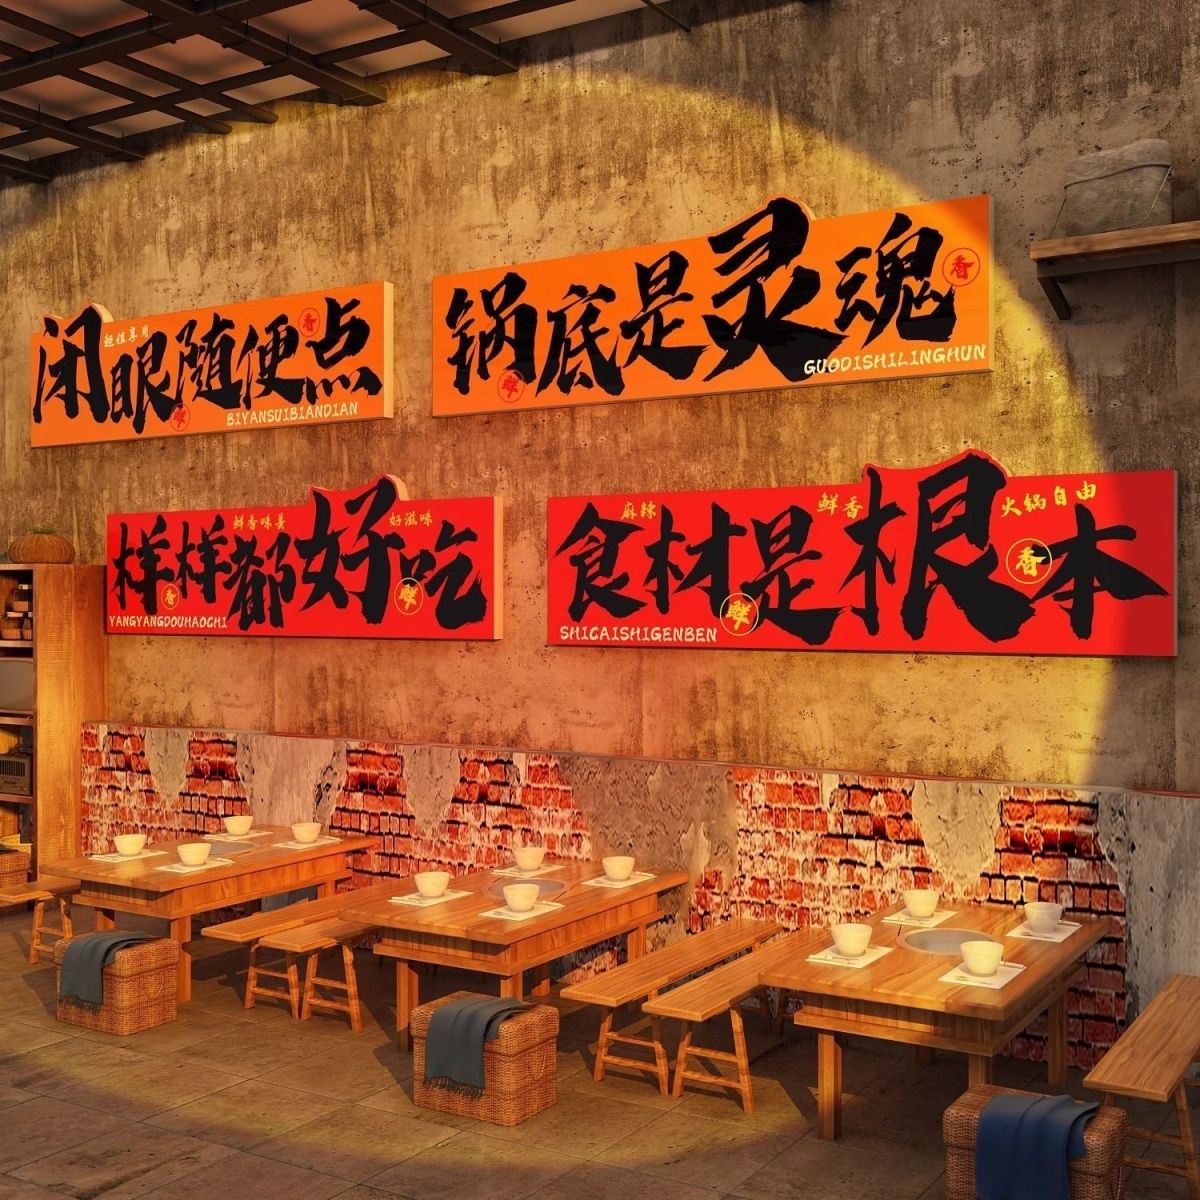 超值享用
香
闭眼随便点
鲜
BIYANSUIBIANDIAN
香
锅底是灵魂
鲜
GUODISHILINGHUN
鲜香味美
好滋味
样样都好吃
香
鲜
YANGYANGDOUHAOCHI
麻辣
鲜香
火锅自由
食材是根本
香
鲜
SHICAISHIGENBEN